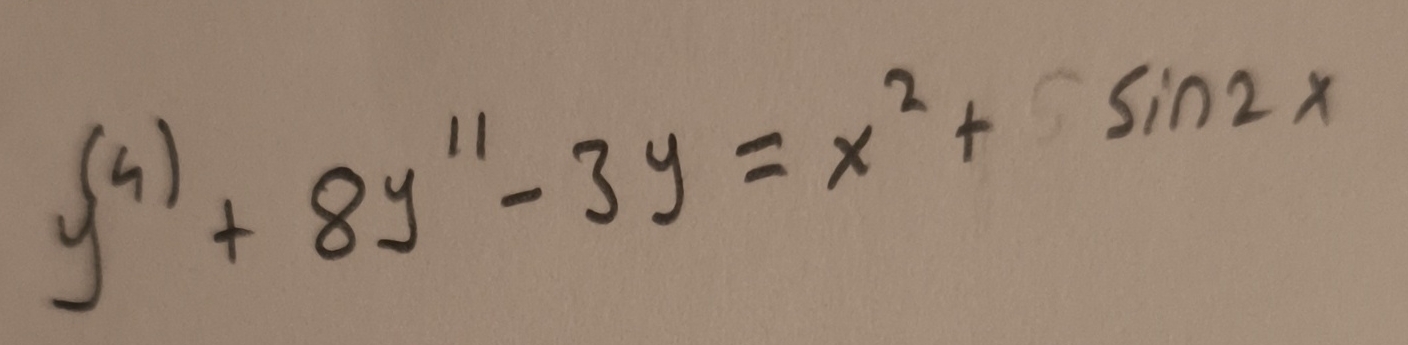 y⁽⁴⁾ + 8y'' - 3y = x² + sin2x